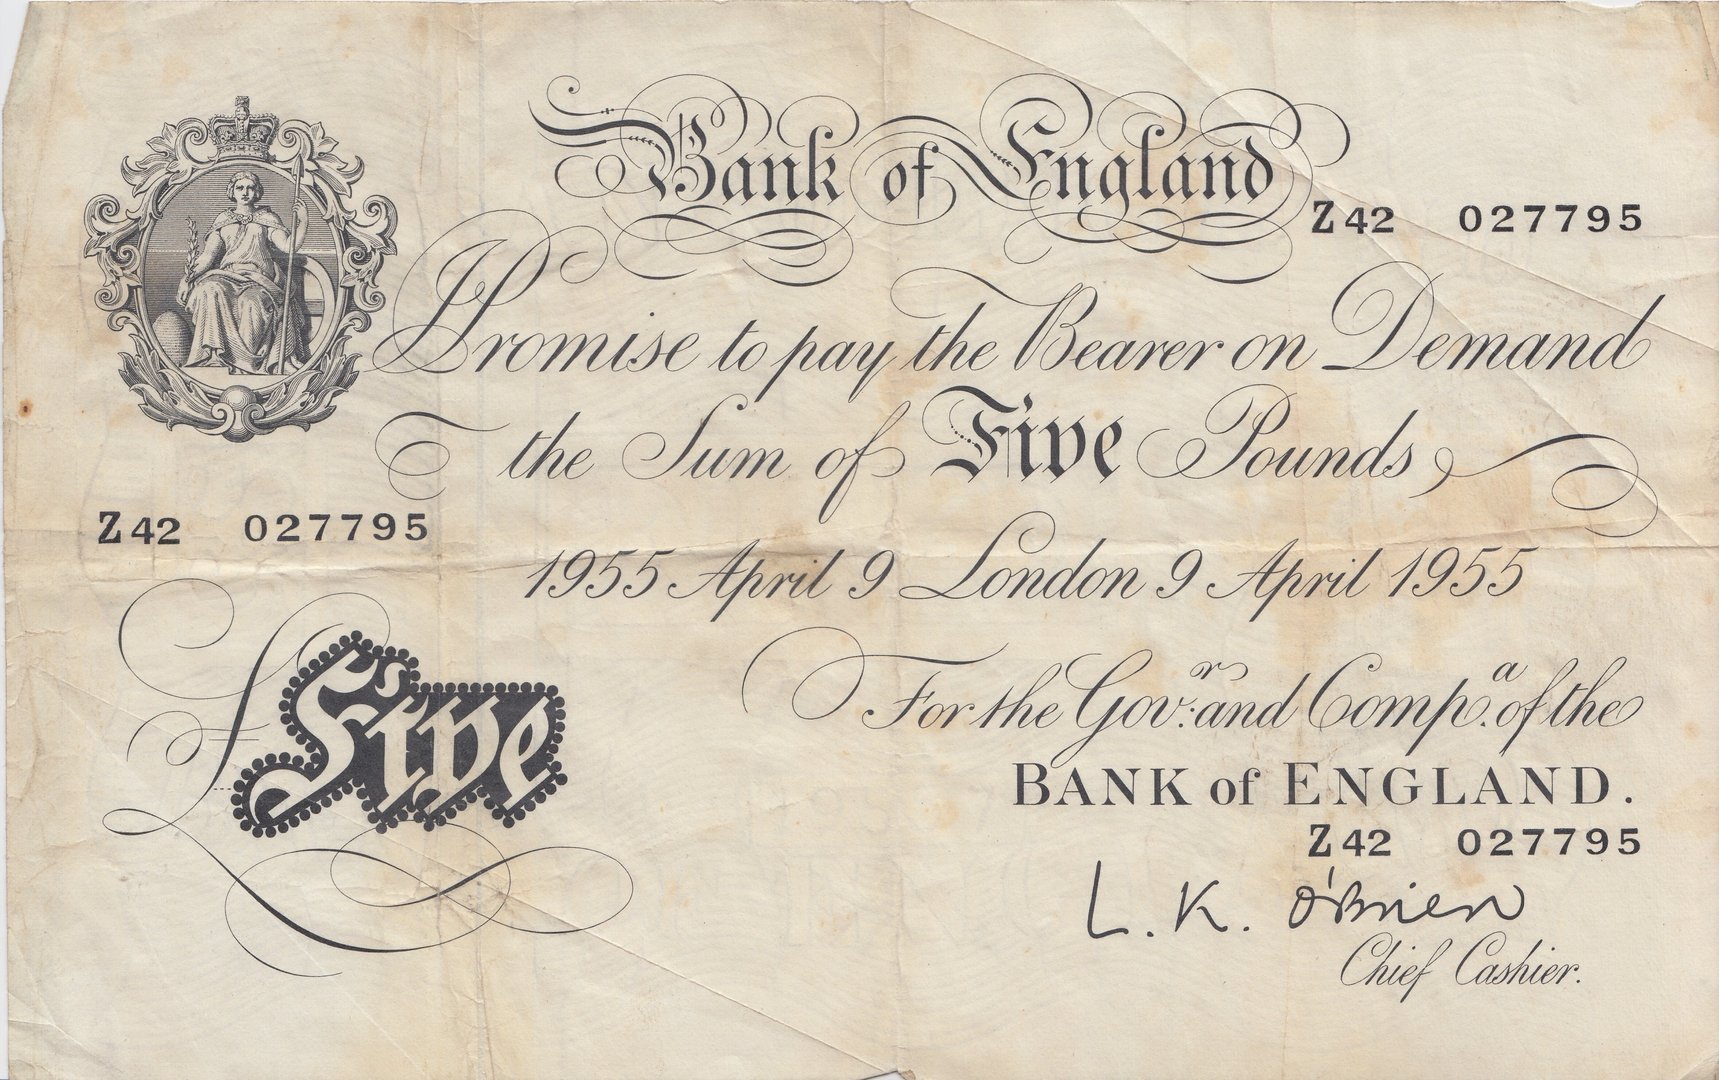 Bank of England
Z42 027795
I Promise to pay the Bearer on Demand
the Sum of Five Pounds
Z42 027795
1955 April 9 London 9 April 1955
£Five
For the Gov.r and Comp.a of the
BANK of ENGLAND.
Z42 027795
L. K. O'Brien
Chief Cashier.